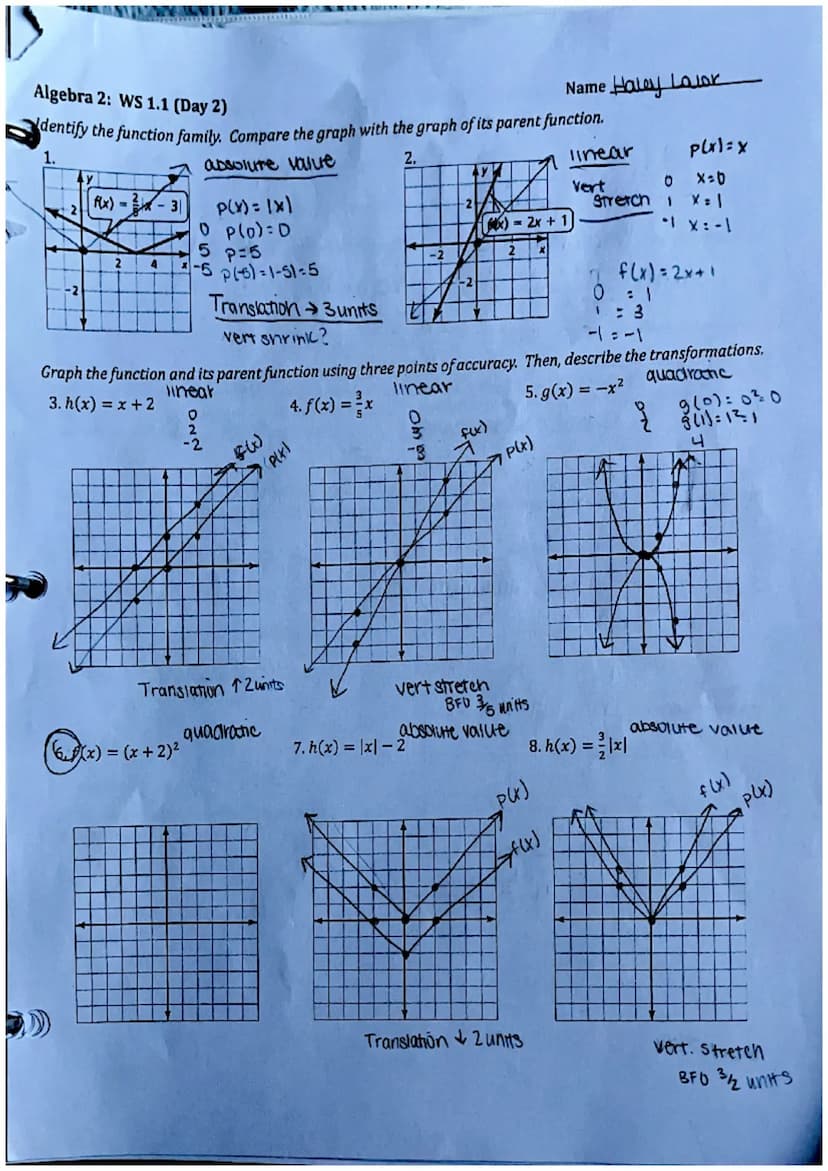 Algebra 2: WS 1.1 (Day 2)
Name Haley Lalor
Identify the function family. Compare the graph with the graph of its parent function.
1.
y
2
2
4
x
-2
absolute value
p(x) = |x|
0 p(0) = 0
5 p=5
-5 p(-5) = |-5| = 5
Translation → 3 units
vert shrink?
2.
y
2
f(x) = 2x + 1
-2
2
x
-2
linear
vert
stretch
p(x) = x
0 x=0
1 x=1
-1 x=-1
f(x) = 2x+1
0 = 1
1 = 3
-1 = -1
Graph the function and its parent function using three points of accuracy. Then, describe the transformations.
3. h(x) = x + 2
linear
0
2
-2
f(x)
p(x)
Translation ↑ 2 units
4. f(x) = 3/5 x
linear
0
3
-3
f(x)
p(x)
vert stretch
BFO 3/5 units
5. g(x) = −x²
quadratic
0 g(0) = 0² = 0
g(1) = 1² = 1
4
6. f(x) = (x + 2)²
quadratic
7. h(x) = |x| − 2
absolute value
p(x)
f(x)
Translation ↓ 2 units
8. h(x) = 3/2 |x|
absolute value
f(x)
p(x)
vert. stretch
BFO 3/2 units